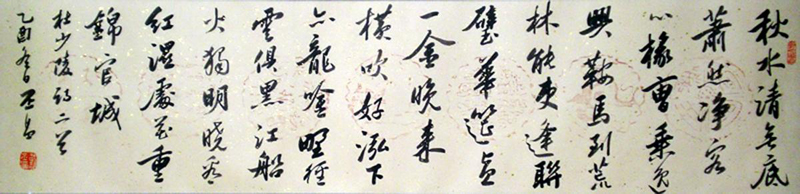 秋水清無底
蕭然净客
心掾曹乘逸
興鞍馬到荒
林能吏逢聯
璧華筵直
一金晚來
橫吹好泓下
亦龍吟野徑
雲俱黑江船
火獨明曉看
紅濕處花重
錦官城
杜少陵詩二首
乙酉冬